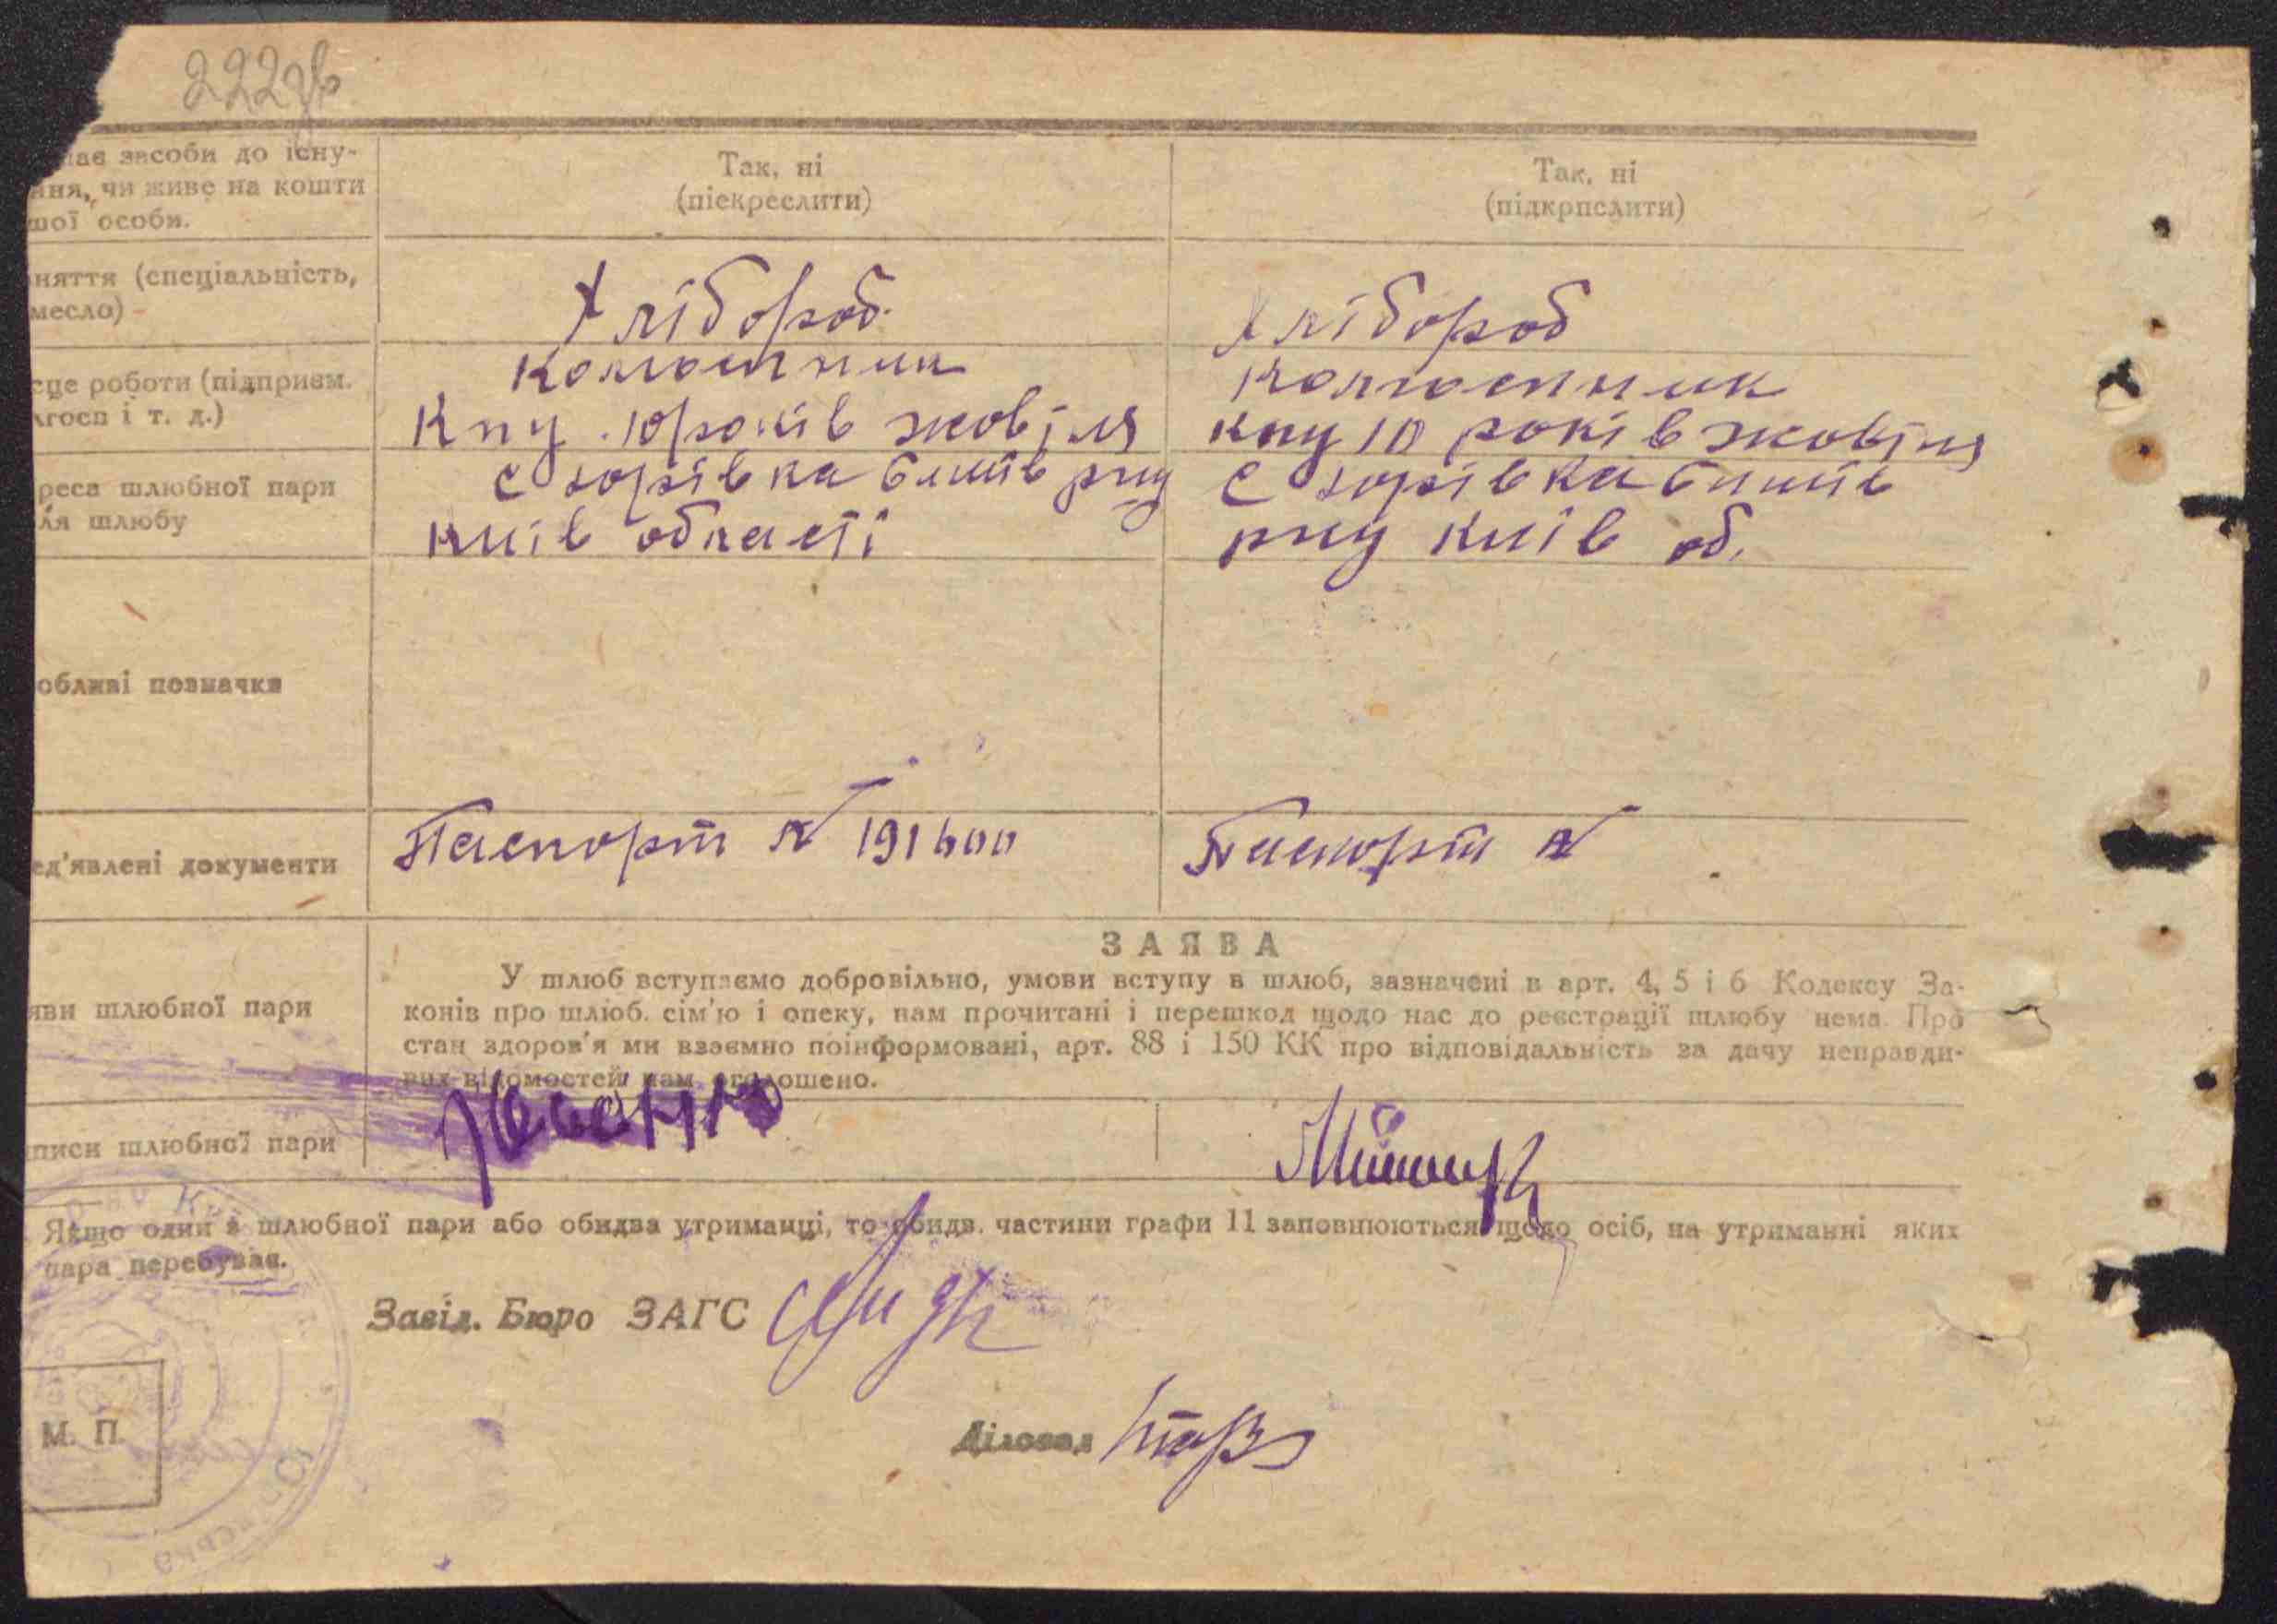 222зв
має засоби до існу-
ння, чи живе на кошти
шої особи.
Так, ні
(піекреслити)
Так, ні
(підкрпслити)
няття (спеціальність,
месло)
Хлібороб.
Хлібороб
сце роботи (підприєм.
лгосп і т. д.)
колгоспник
Кпу 10 років жовтня
колгоспник
кпу 10 років жовтня
реса шлюбної пари
ля шлюбу
с Юрівка рну
київ області
с Юрівка
рну київ об.
обливі позначки
ед'явлені документи
Паспорт N 191600
Паспорт N
ЗАЯВА
яви шлюбної пари
У шлюб вступаємо добровільно, умови вступу в шлюб, зазначені в арт. 4, 5 і 6 Кодексу За-
конів про шлюб. сім'ю і опеку, нам прочитані і перешкод щодо нас до реєстрації шлюбу нема. Про
стан здоров'я ми взаємно поінформовані, арт. 88 і 150 КК про відповідальність за дачу неправди-
вих відомостей нам оголошено.
писи шлюбної пари
Якщо один з шлюбної пари або обидва утриманці, то обидв. частини графи 11 заповнюються щодо осіб, на утриманні яких
пара перебуває.
Завід. Бюро ЗАГС
М. П.
Діловод